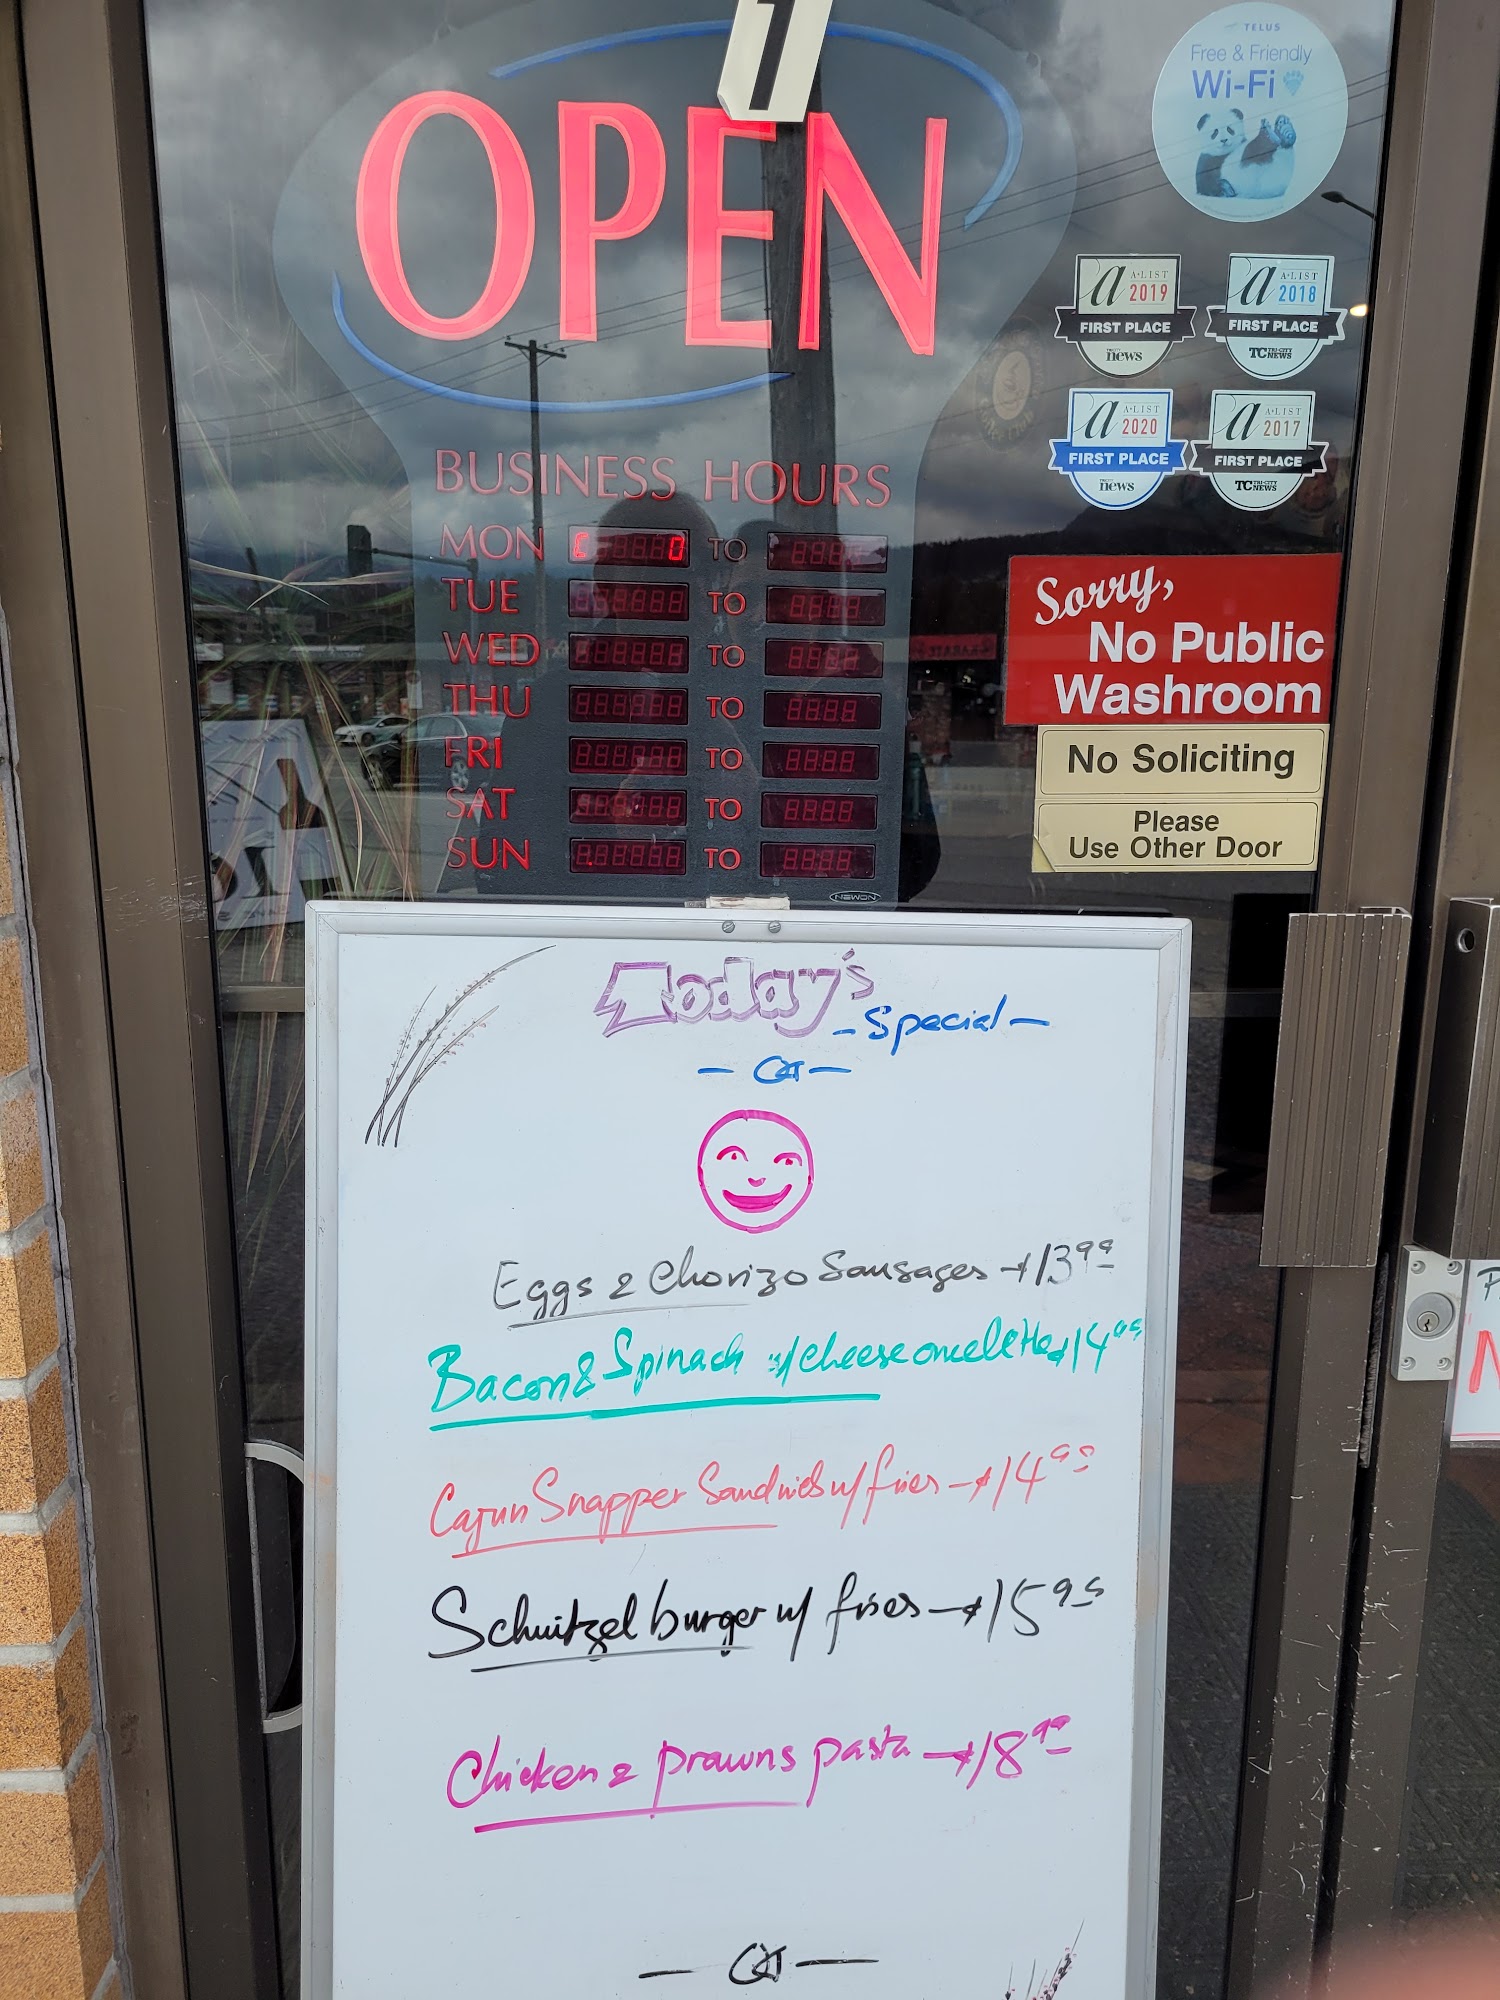 1
OPEN
TELUS
Free & Friendly
Wi-Fi
a A-LIST 2019
FIRST PLACE
news
a A-LIST 2018
FIRST PLACE
TC TRI-CITY NEWS
a A-LIST 2020
FIRST PLACE
news
a A-LIST 2017
FIRST PLACE
TC TRI-CITY NEWS
BUSINESS HOURS
MON TO
TUE TO
WED TO
THU TO
FRI TO
SAT TO
SUN TO
NEWON
Sorry,
No Public
Washroom
No Soliciting
Please
Use Other Door
Today's
- Special -
Eggs & Chorizo Sausages - $13.99
Bacon & Spinach w/ cheese omelette $14.95
Cajun Snapper Sandwich w/ fries - $14.95
Schnitzel burger w/ fries - $15.95
Chicken & prawns pasta - $18.99